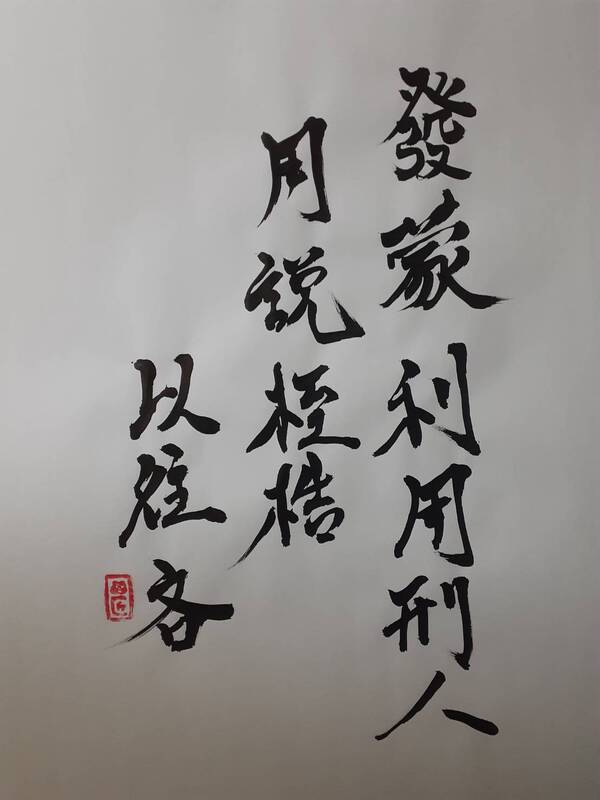 發蒙利用刑人
用説桎梏
以往吝